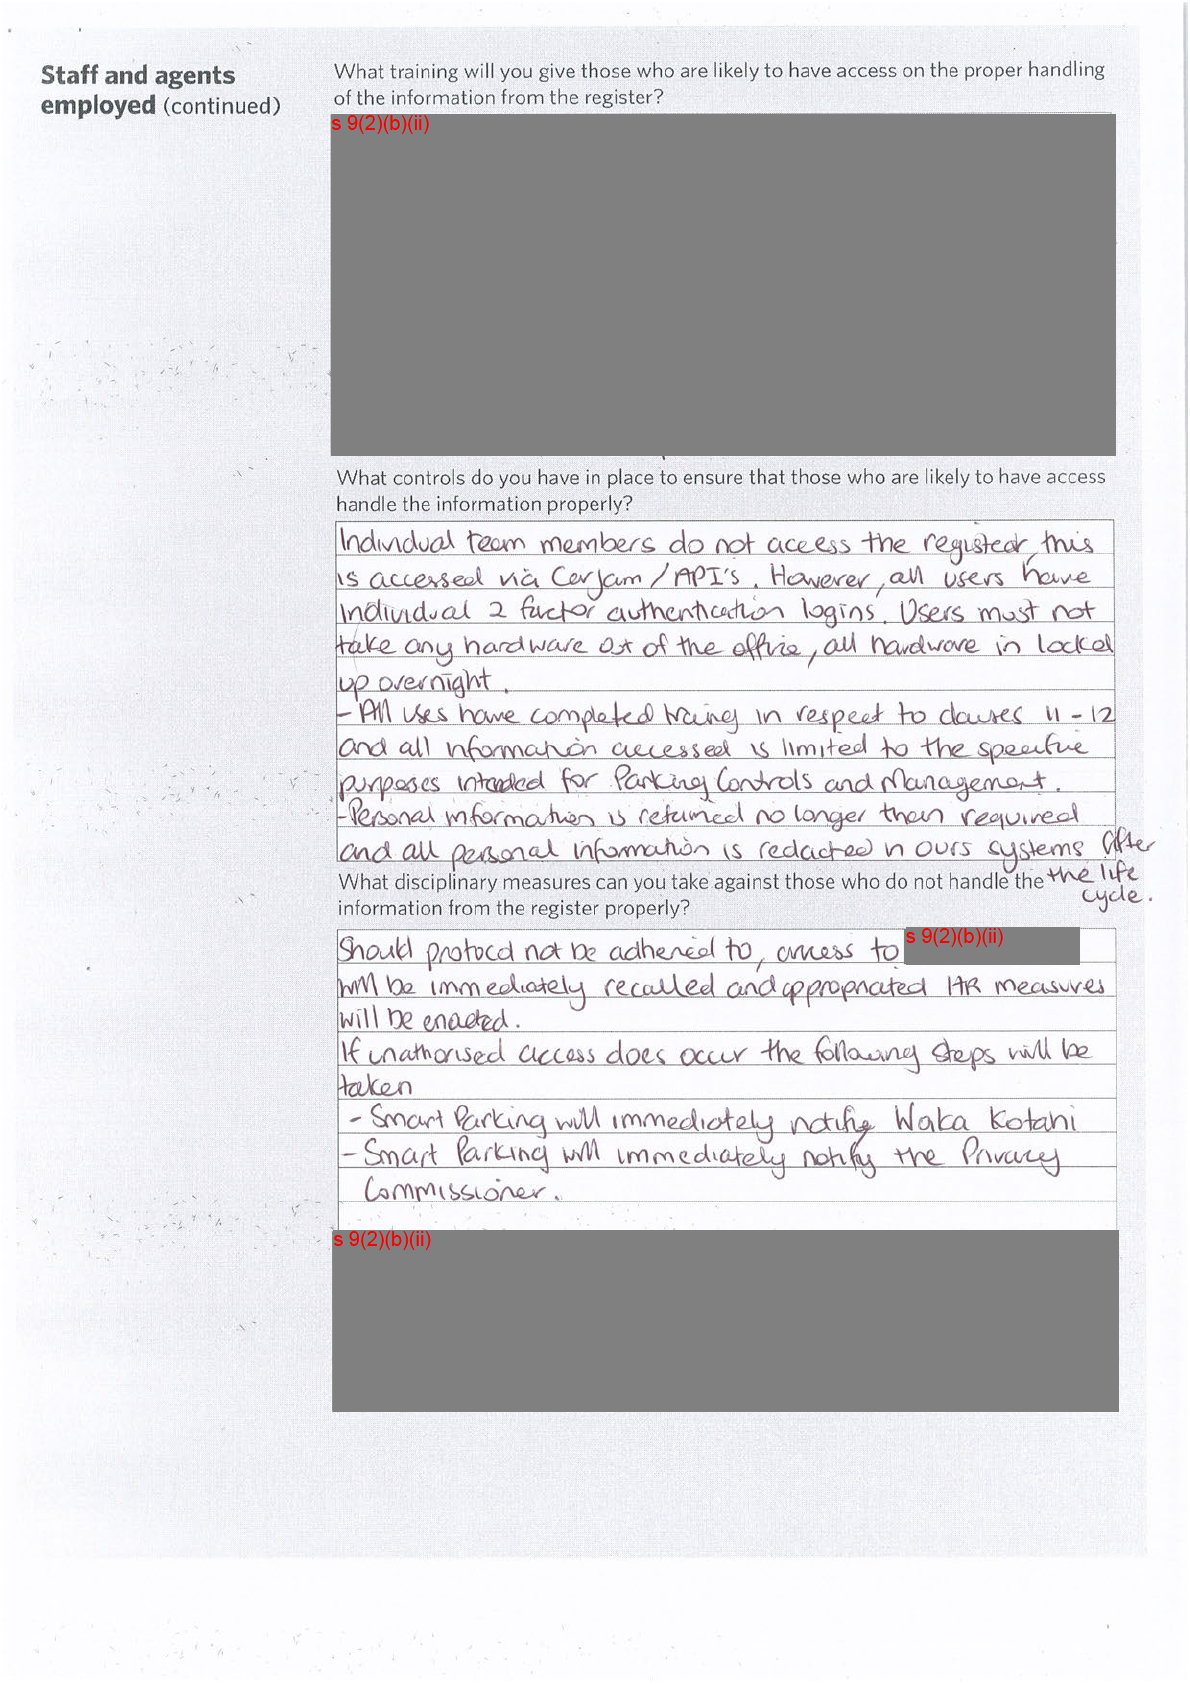 Staff and agents
employed (continued)
What training will you give those who are likely to have access on the proper handling
of the information from the register?
s 9(2)(b)(ii)
What controls do you have in place to ensure that those who are likely to have access
handle the information properly?
Individual team members do not access the register, this
is accessed via CerJam / API's. However, all users have
Individual 2 factor authentication logins. Users must not
take any hardware out of the office, all hardware in locked
up overnight.
- All uses have completed traing in respect to clauses 11 - 12
and all information accessed is limited to the specific
purposes intended for Parking Controls and Management.
- Personal information is retained no longer than required
and all personal information is redacted in ours systems after
the life
cycle.
What disciplinary measures can you take against those who do not handle the
information from the register properly?
Should protocol not be adhered to, access to s 9(2)(b)(ii)
will be immediately recalled and appropriated HR measures
will be enacted.
If unathorised access does occur the following steps will be
taken
- Smart Parking will immediately notify Waka Kotani
- Smart Parking will immediately notify the Privacy
Commissioner.
s 9(2)(b)(ii)